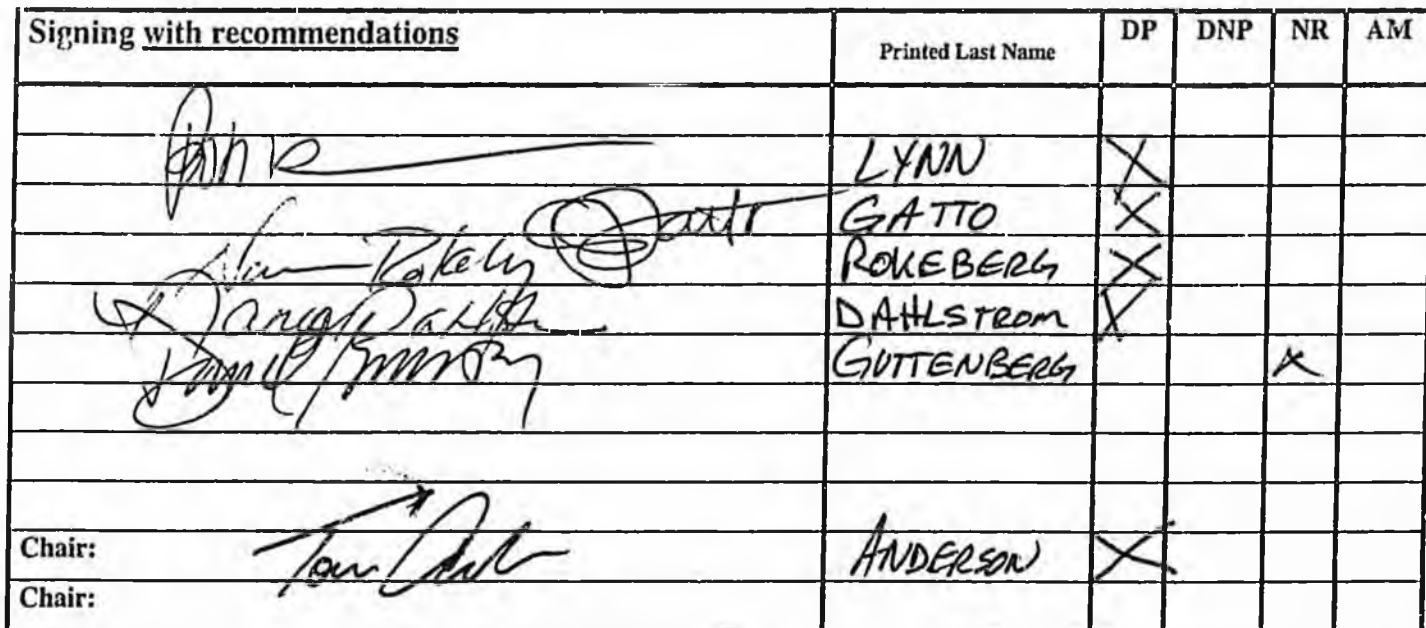 Signing with recommendations Printed Last Name DP DNP NR AM
LYNN X
Gatto GATTO X
ROKEBERG X
DAHLSTROM X
GUTTENBERG X
Chair: Tom ANDERSON X
Chair: